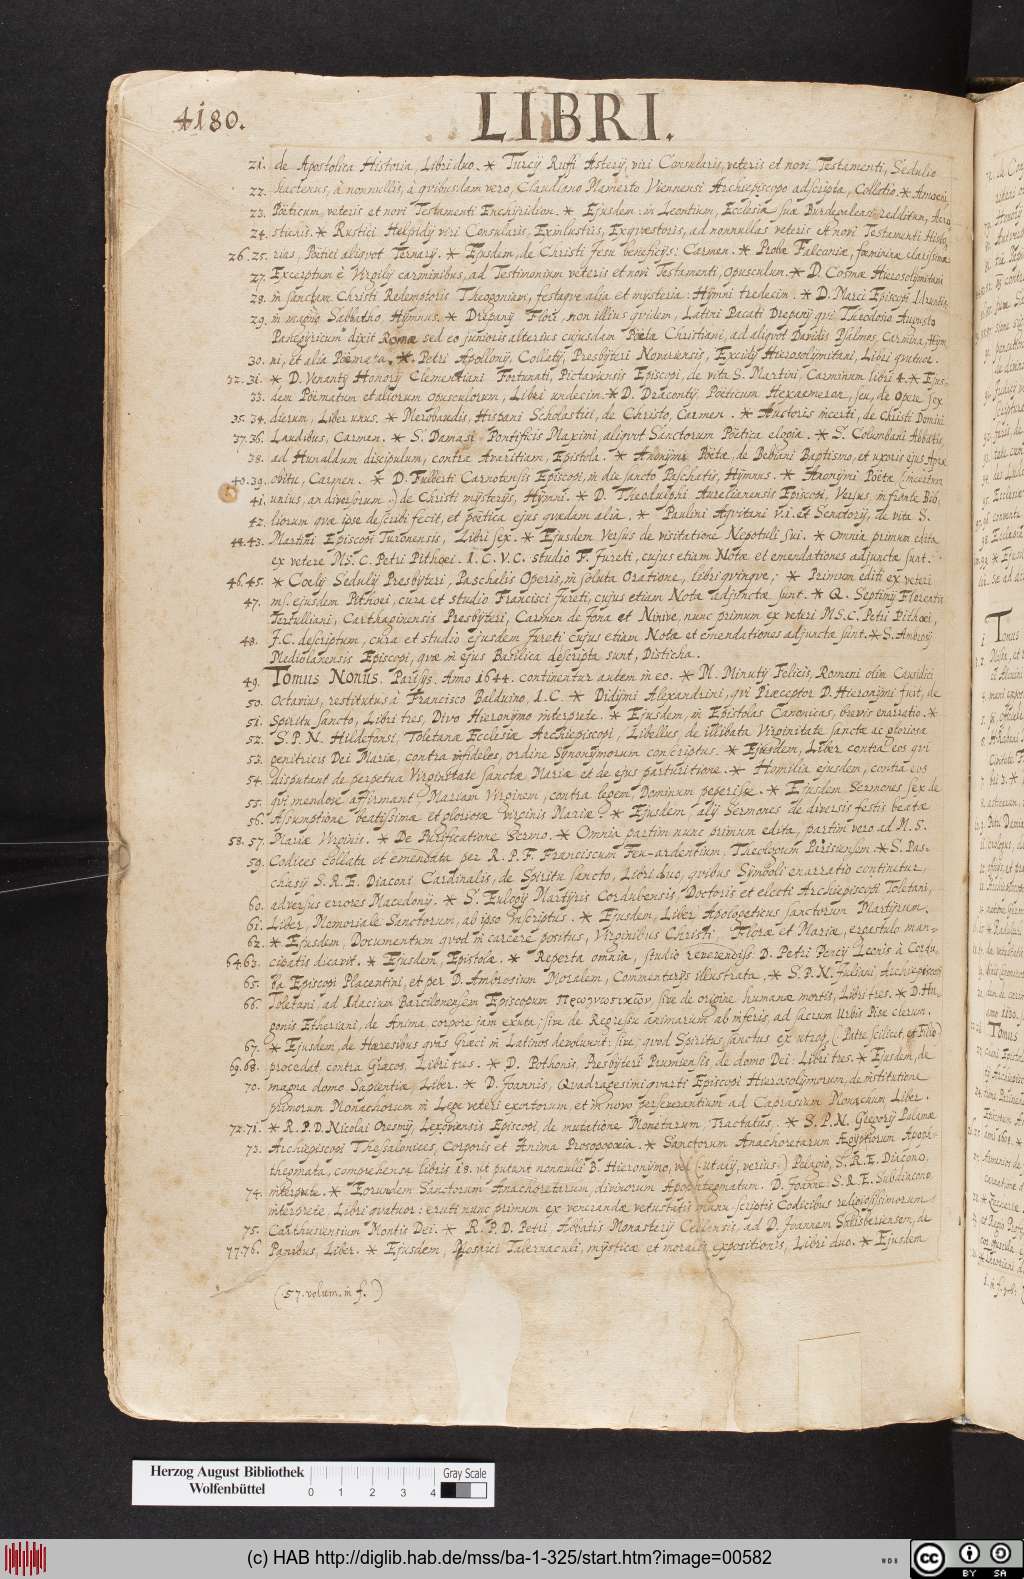 4180.
LIBRI.
21. de Apostolica Historia, Libri duo. * Turcÿ Ruffi Asterÿ, viri Consularis, veteris et novi Testamenti, Sedulio
22. hactenus, à nonnullis, à quibusdam vero, Claudiano Mamerto Viennensi Archiepiscopo adscripta, Collatio. * Amoeni
23. Poëticum, veteris et novi Testamenti Enchÿridion. * Ejusdem in Leontium, Ecclesiæ suæ Burdegaleas redditum,
24. stichis. * Rustici Helpidÿ viri Consularis, Exinlustris, Exqvæstoris, ad nonnullas veteris et novi Testamenti Histo,
26. 25. rias, Poëtici aliqvot Ternarÿ. * Ejusdem, de Christi Jesu beneficÿs: Carmen. * Probæ Falconiæ, foeminæ clarissimæ
27. Excerptum è Virgilÿ carminibus, ad Testimonium veteris et novi Testamenti, opusculum. * D. Cosmæ Hierosolÿmitani
28. in sanctam Christi Redemptoris Theogoniam, festaqve alia et mysteria: Hÿmni tredecim. * D. Marci Episcopi Idruntis:
29. in magno Sabbatho Hÿmnus. * Drepanÿ Flori, non illius qvidem, Latini Pacati Drepanÿ qvi Theodosio Augusto
Panegÿricum dixit Romæ sed eo junioris alterius cujusdam Poëtæ Christiani, ad aliqvot Davidis Psalmos, Carmina, Hÿm,
30. ni, et alia Poëmata. * Petri Apollonÿ, Collatÿ, Presbÿteri Novariensis, Excidÿ Hierosolÿmitani, Libri qvatuor.
32. 31. * D. Venantÿ Honorÿ Clementiani Fortunati, Pictaviensis Episcopi, de vita S. Martini, Carminum libri 4. * Ejus-
33. dem Poëmatum et aliorum opusculorum, Libri undecim. * D. Dracontÿ Poëticum Hexaëmeron, seu, de Opere sex
35. 34. dierum, Liber unus. * Merobaudis, Hispani Scholastici, de Christo, Carmen. * Auctoris incerti, de Christi Domini
37. 36. Laudibus, Carmen. * S. Damasi Pontificis Maximi, aliqvot Sanctorum Poëtica elogia. * S. Columbani Abbatis,
38. ad Hunaldum discipulum, contra Avaritiam, Epistola. * Anonÿmi Poëtæ, de Bebiani Baptismo, et uxoris ejus Apræ
40. 39. obitu, Carmen. * D. Fulberti Carnotensis Episcopi, in die sancto Paschatis, Hÿmnus. * Anonÿmi Poëtæ (incertum
41. unius, an diversorum) de Christi mÿsterÿs, Hÿmni. * D. Theodulphi Aurelianensis Episcopi, Versus, in fronte Bib,
42. liorum qvæ ipse describi fecit, et poëtica ejus qvædam alia. * Paulini Aqvitani v.i. et Senatorÿ, de vita S.
44. 43. Martini Episcopi Turonensis, Libri sex. * Ejusdem Versus de visitatione Nepotuli sui. * Omnia primum edita
ex vetere MS. C. Petri Pithoei. I. C. V. C. studio F. Jureti, cujus etiam Notæ et emendationes adjunctæ sunt.
46. 45. * Coelÿ Sedulÿ Presbÿteri, Paschalis Operis, in soluta Oratione, libri qvinqve; * Primum editi ex veteri
47. ms. ejusdem Pithoei, cura et studio Francisci Jureti, cujus etiam Notæ adjunctæ sunt. * Q. Septimÿ Florentis
Tertulliani, Carthaginensis Presbÿteri, Carmen de Jona et Ninive, nunc primum ex veteri M.S.C. Petri Pithoei,
48. J.C. descriptum, cura et studio ejusdem Jureti cujus etiam Notæ et emendationes adjunctæ sunt. * S. Ambrosÿ
Mediolanensis Episcopi, qvæ in ejus Basilica descripta sunt, Disticha.
49. Tomus Nonus. Parisÿs. Anno 1644. continentur autem in eo. * M. Minutÿ Felicis, Romani olim Causidici
50. Octavius, restitutus à Francisco Balduino, I.C. * Didÿmi Alexandrini, qvi Præceptor D. Hieronÿmi fuit, de
51. Spiritu sancto, Libri tres, Divo Hieronÿmo interprete. * Ejusdem, in Epistolas Canonicas, brevis enarratio. *
52. S. P. N. Hildefonsi, Toletanæ Ecclesiæ Archiepiscopi, Libellus, de illibata Virginitate sanctæ ac gloriosæ
53. genitricis Dei Mariæ, contra infideles, ordine Sÿnonÿmorum conscriptus. * Ejusdem, Liber contra eos qvi
54. disputant de perpetua Virginitate sanctæ Mariæ et de ejus parturitione. * Homilia ejusdem, contra eos
55. qvi mendose affirmant Mariam Virginem, contra legem, Dominum peperisse. * Ejusdem Sermones sex de
56. Assumptione beatissimæ et gloriosæ Virginis Mariæ. * Ejusdem alÿ Sermones de diversis festis beatæ
58. 57. Mariæ Virginis. * De Purificatione Sermo. * Omnia partim nunc primum edita, partim vero ad M. S.
59. Codices collata et emendata per R. P. F. Franciscum Feu-ardentium, Theologum Parisiensem. * S. Pas-
chasÿ S. R. E. Diaconi Cardinalis, de Spiritu sancto, Libri duo, qvibus Sÿmboli enarratio continetur,
60. adversus errores Macedonÿ. * S. Eulogÿ Martÿris Cordubensis, Doctoris et electi Archiepiscopi Toletani,
61. Liber, Memoriale Sanctorum, ab ipso inscriptus. * Ejusdem, Liber Apologeticus sanctorum Martÿrum.
62. * Ejusdem, Documentum qvod in carcere positus, Virginibus Christi, Floræ et Mariæ, ergastulo man-
64. 63. cipatis dicavit. * Ejusdem, Epistolæ. * Reperta omnia, studio reverendiss: D. Petri Poncÿ Leonis à Cordu,
65. ba Episcopi Placentini, et per D. Ambrosium Moralem, Commentarÿs illustrata. * S. P. N. Juliani Archiepiscopi
66. Toletani, ad Idacium Barcilonensem Episcopum Προγνωστικῶν, sive de origine humanæ mortis, Libri tres. * D. Hu-
gonis Etheriani, de Anima corpore jam exuta: sive de Regressu animarum ab inferis, ad sacrum Urbis Pisæ clerum.
67. * Ejusdem, de Hæresibus qvas Græci in Latinos devolvunt: sive, qvod Spiritus sanctus ex utroq. (Patre scilicet et Filio)
69. 68. procedat, contra Græcos, Libri tres. * D. Pothonis, Presbÿteri Prumiensis de domo Dei: Libri tres. * Ejusdem, de
70. magna domo Sapientiæ, Liber. * D. Joannis, Quadragesimi qvarti Episcopi Hierosolÿmorum, de institutione
primorum Monachorum in Lege veteri exortorum, et in novo perseverantium ad Caprasium Monachum Liber.
72. 71. * R. P. D. Nicolai Oresmÿ, Lexoviensis Episcopi, de mutatione Monetarum, Tractatus. * S. P. N. Gregorÿ Palamæ
73. Archiepiscopi Thessalonices, Corporis et Animæ Prosopopoeia. * Sanctorum Anachoretarum Ægÿptiorum Apoph-
thegmata, comprehensa libris 18. vt putant nonnulli B. Hieronÿmo, vel (: ut alÿ, verius :) Pelagio, S. R. E. Diacono,
74. interprete. * Eorundem Sanctorum Anachoretarum, divinorum Apophtegmatum. D. Joanne S. R. E. Subdiacono
interprete, Libri qvatuor: eruti nunc primum ex venerandæ vetustatis manu scriptis Codicibus religiosissimorum
75. Carthusiensium Montis Dei. * R. P. D. Petri Abbatis Monasterÿ Cellensis, ad D. Joannem Sarisberiensem, de
77. 76. Panibus, Liber. * Ejusdem, Mosaici Tabernaculi, mÿsticæ et moralis Expositionis, Libri duo. * Ejusdem
(57. volum. in f.)
Herzog August Bibliothek
Wolfenbüttel
0 1 2 3 4
Gray Scale
(c) HAB http://diglib.hab.de/mss/ba-1-325/start.htm?image=00582
WDB
cc BY SA